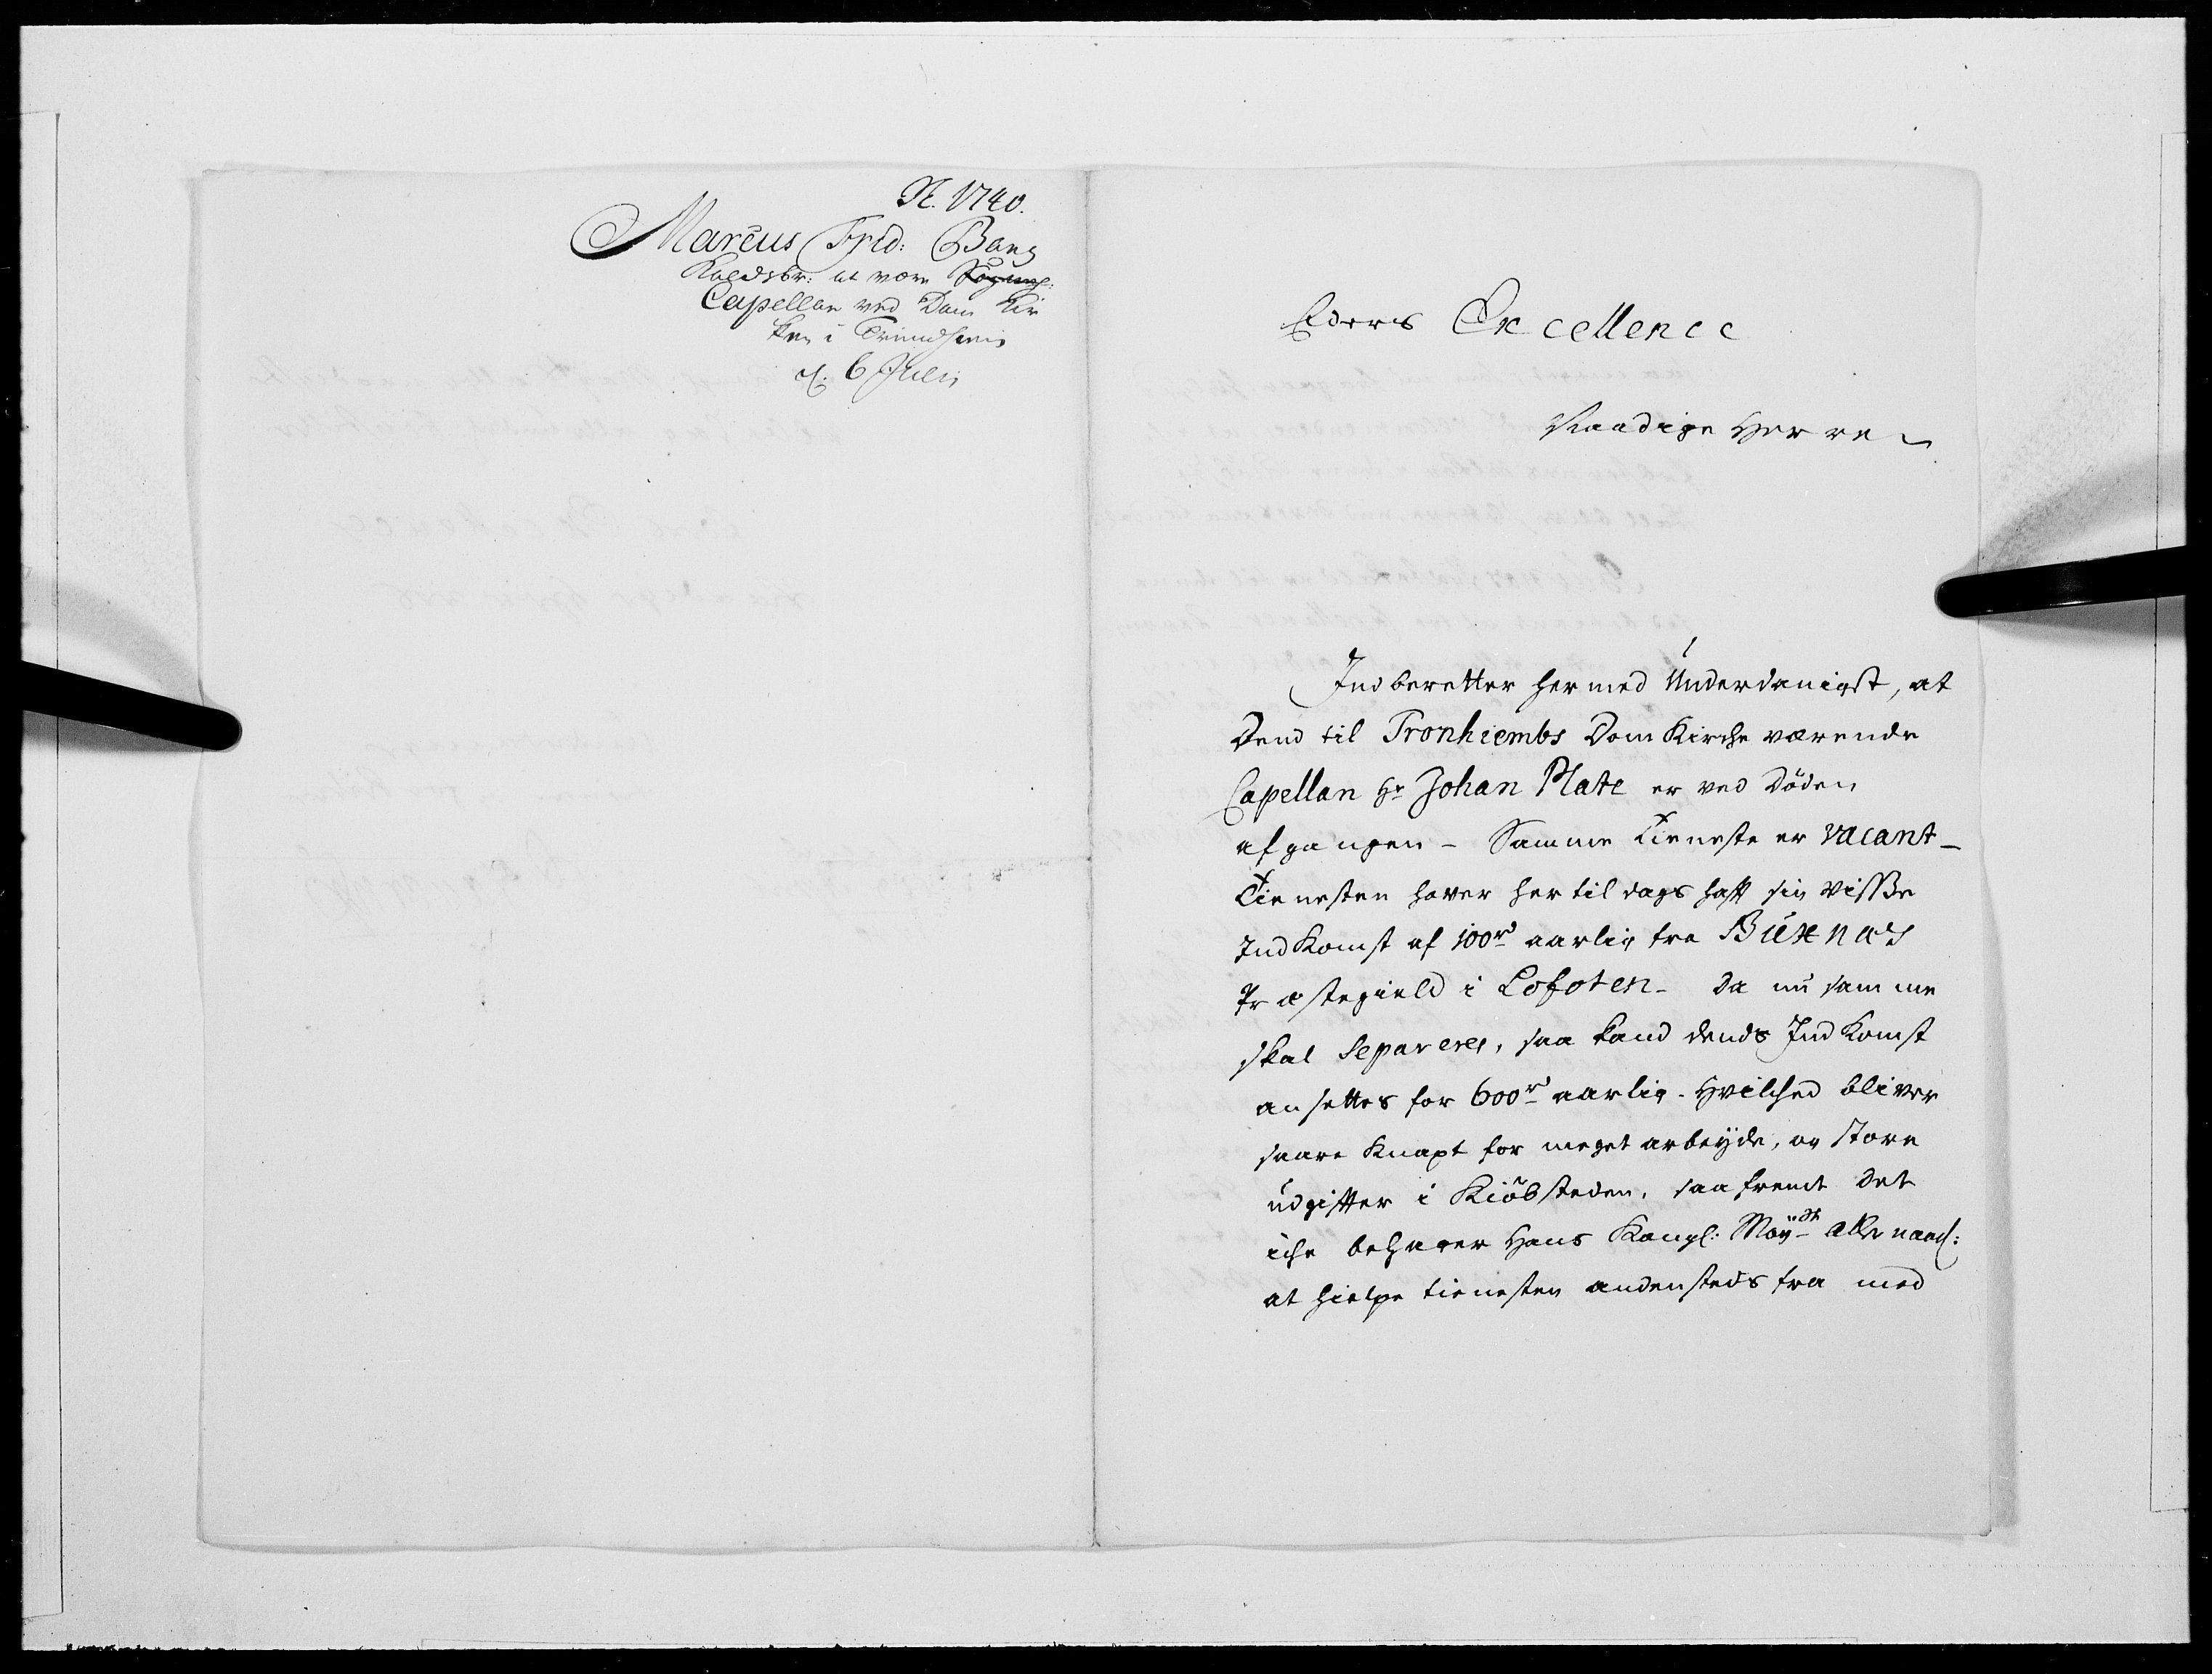 N. 1740.
Marcus Frid: Bang
Kaldsbr: at være Sogne
Capellan ved Dom Kir
ken i Trundhiem
d: 6 Julii
Eders Excellence
Naadige Herre
Indberetter hermed Underdanigst, at
Dend til Tronhiembs Dom Kirche værende
Capellan Hr Johan Plate er ved Döden
afgangen - Samme Tieneste er vacant -
Tienesten haver her til dags haft sin visse
Ind Komst af 100 rd aarlig fra Buxnæs
Præstegield i Lofoten - da nu samme
skal Separeres, saa kand dends Ind Komst
ansettes for 600 rd aarlig. Hvilched bliver
saare Knapt for meget arbeyde, og store
udgifter i Kiöbsteden, saafremt det
iche behager Hans Kongl: Mayst Allernaad:
at hielpe tienesten andensteds fra med